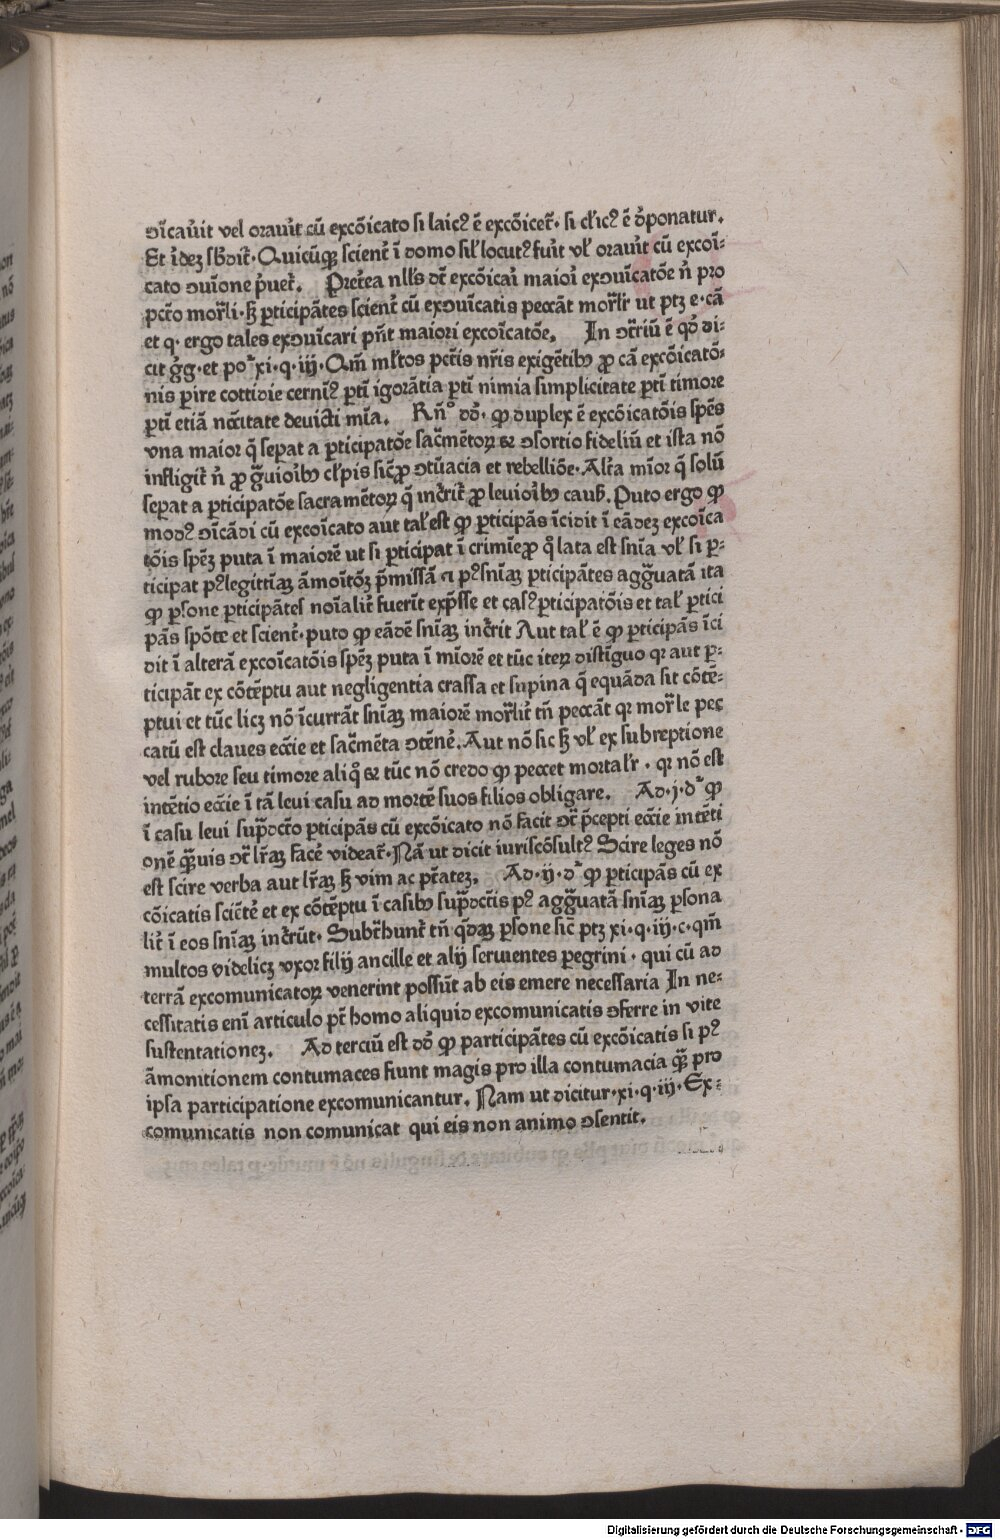 ↄĩcaũit vel orauĩt cũ excõicato si laicꝰ ẽ excõicet̃· si cl̃icꝰ ẽ d̾ponatur.
Et ĩdeꝫ sb̾dit̃· Quicũqꝫ sciẽt̾ ĩ domo sil̃ locutꝰ fuĩt vl̾ orauĩt cũ excoĩ-
cato ↄuĩone p̾uet̃. Pret̾ea nll̾s dt̃ excõicaĩ maioĩ exↄuĩcatõe n̾ pro
pctõ mor̃li· sꝫ ꝑticipãtes sciẽt̾ cũ exↄuĩcatis peccãt mor̃lr̃ ut ptꝫ e· cã
et q· ergo tales exↄuĩcari pñt maiori excoĩcatõe. In ↄt̾riũ ẽ qd̾ di-
cit g̾g· et poʳ xi· q· iij· Qm̃ ml̾tos pctĩs nr̃is exigẽtibꝰ ꝓ cã excõicatõ-
nis ꝑire cottidie cernĩꝰ ꝑtĩ igorãtia ꝑtĩ nimia simplicitate ꝑtĩ timore
ꝑtĩ etiã nc̃citate deuicti mĩa. Rñº dd̾· ꝙ duplex ẽ excõicatõis spẽs
vna maior q̃ seꝑat a ꝑticipatõe sac̃mẽtoꝝ ⁊ ↄsortio fideliũ et ista nõ
infligit̃ n̾ ꝓ g̃uioĩbꝰ cl̾pis sic̃ ꝓ ↄtũacia et rebelliõe· Alt̃a mĩor q̃ solũ
seꝑat a ꝑticipatõe sacramẽtoꝝ q̃ inc̾rit̃ ꝓ leuioĩbꝰ causꝭ. Puto ergo ꝙ
modꝰ ↄĩcãdi cũ excoĩcato aut tal̾ est ꝙ ꝑticipãs ĩcidit ĩ eãdeꝫ excoĩca
tõis spẽꝫ puta ĩ maiorẽ ut si ꝑticipat ĩ crimĩe ꝓ q̾ lata est snĩa vl̾ si ꝑ-
ticipat pꝰ legittĩaꝫ ãmoĩtõꝫ p̃missã a pꝰ snĩaꝫ ꝑticipãtes agg̃uatã ita
ꝙ ꝑsone ꝑticipãtes noĩalit̃ fuerĩt exp̃sse et casꝰ ꝑticipatõis et tal̾ ꝑtici
pãs spõte et sciẽt̾· puto ꝙ eãdẽ snĩaꝫ inc̾rit Aut tal̾ ẽ ꝙ ꝑticipãs ĩci
dit ĩ alterã excoĩcatõis spẽꝫ puta ĩ mĩorẽ et tũc iteꝝ distĩguo qꝛ aut ꝑ-
ticipãt ex cõtẽptu aut negligentia crassa et supina q̃ equãda sit cõtẽ-
ptui et tũc licꝫ nõ ĩcurrãt snĩaꝫ maiorẽ mor̃lit̃ tñ peccãt qꝛ mor̃le pec
catũ est claues ecc̃ie et sac̃mẽta ↄtẽne̾. Aut nõ sic sꝫ vl̾ ex subreptione
vel rubore seu timore aliq̊ ⁊ tũc nõ credo ꝙ peccet mortal̾r· qꝛ nõ est
intẽtio ecc̃ie ĩ tã leui casu ad mortẽ suos filios obligare. Ad· j· dʳ ꝙ
ĩ casu leui sup̃dctõ ꝑticipãs cũ excõicato nõ facit ↄt̃ p̃cepti ecc̃ie intẽti
onẽ q̃uis ↄt̃ lr̃aꝫ face̾ videat̃· Nã ut dicit iuriscõsultꝰ Scire leges nõ
est scire verba aut lr̃aꝫ sꝫ vim ac pt̃ateꝫ. Ad· ij· dʳ ꝙ ꝑticipãs cũ ex
cõicatis sciẽt̾ et ex cõtẽptu ĩ casibꝰ sup̃dctĩs pꝰ agg̃uatã snĩaꝫ ꝑsona
lit̃ ĩ eos snĩaꝫ inc̾rũt· Subt̃hunt̃ tñ q̃daꝫ ꝑsone sic̃ ptꝫ xi· q· iij· c· qm̃
multos videlicꝫ vxor filij ancille et alij seruientes ꝑegrini· qui cũ ad
terrã excomunicatoꝝ venerint possũt ab eis emere necessaria In ne-
cessitatis enĩ articulo pt̃ homo aliquid excomunicatis ↄferre in vite
sustentationeꝫ. Ad terciũ est dd̾ ꝙ participãtes cũ excõicatis si pꝰ
ãmonitionem contumaces fiunt magis pro illa contumacia q̃ꝫ pro
ipsa participatione excomunicantur. Nam ut dicitur· xi· q· iij· Ex-
comunicatis non comunicat qui eis non animo ↄsentit.
Digitalisierung gefördert durch die Deutsche Forschungsgemeinschaft - DFG